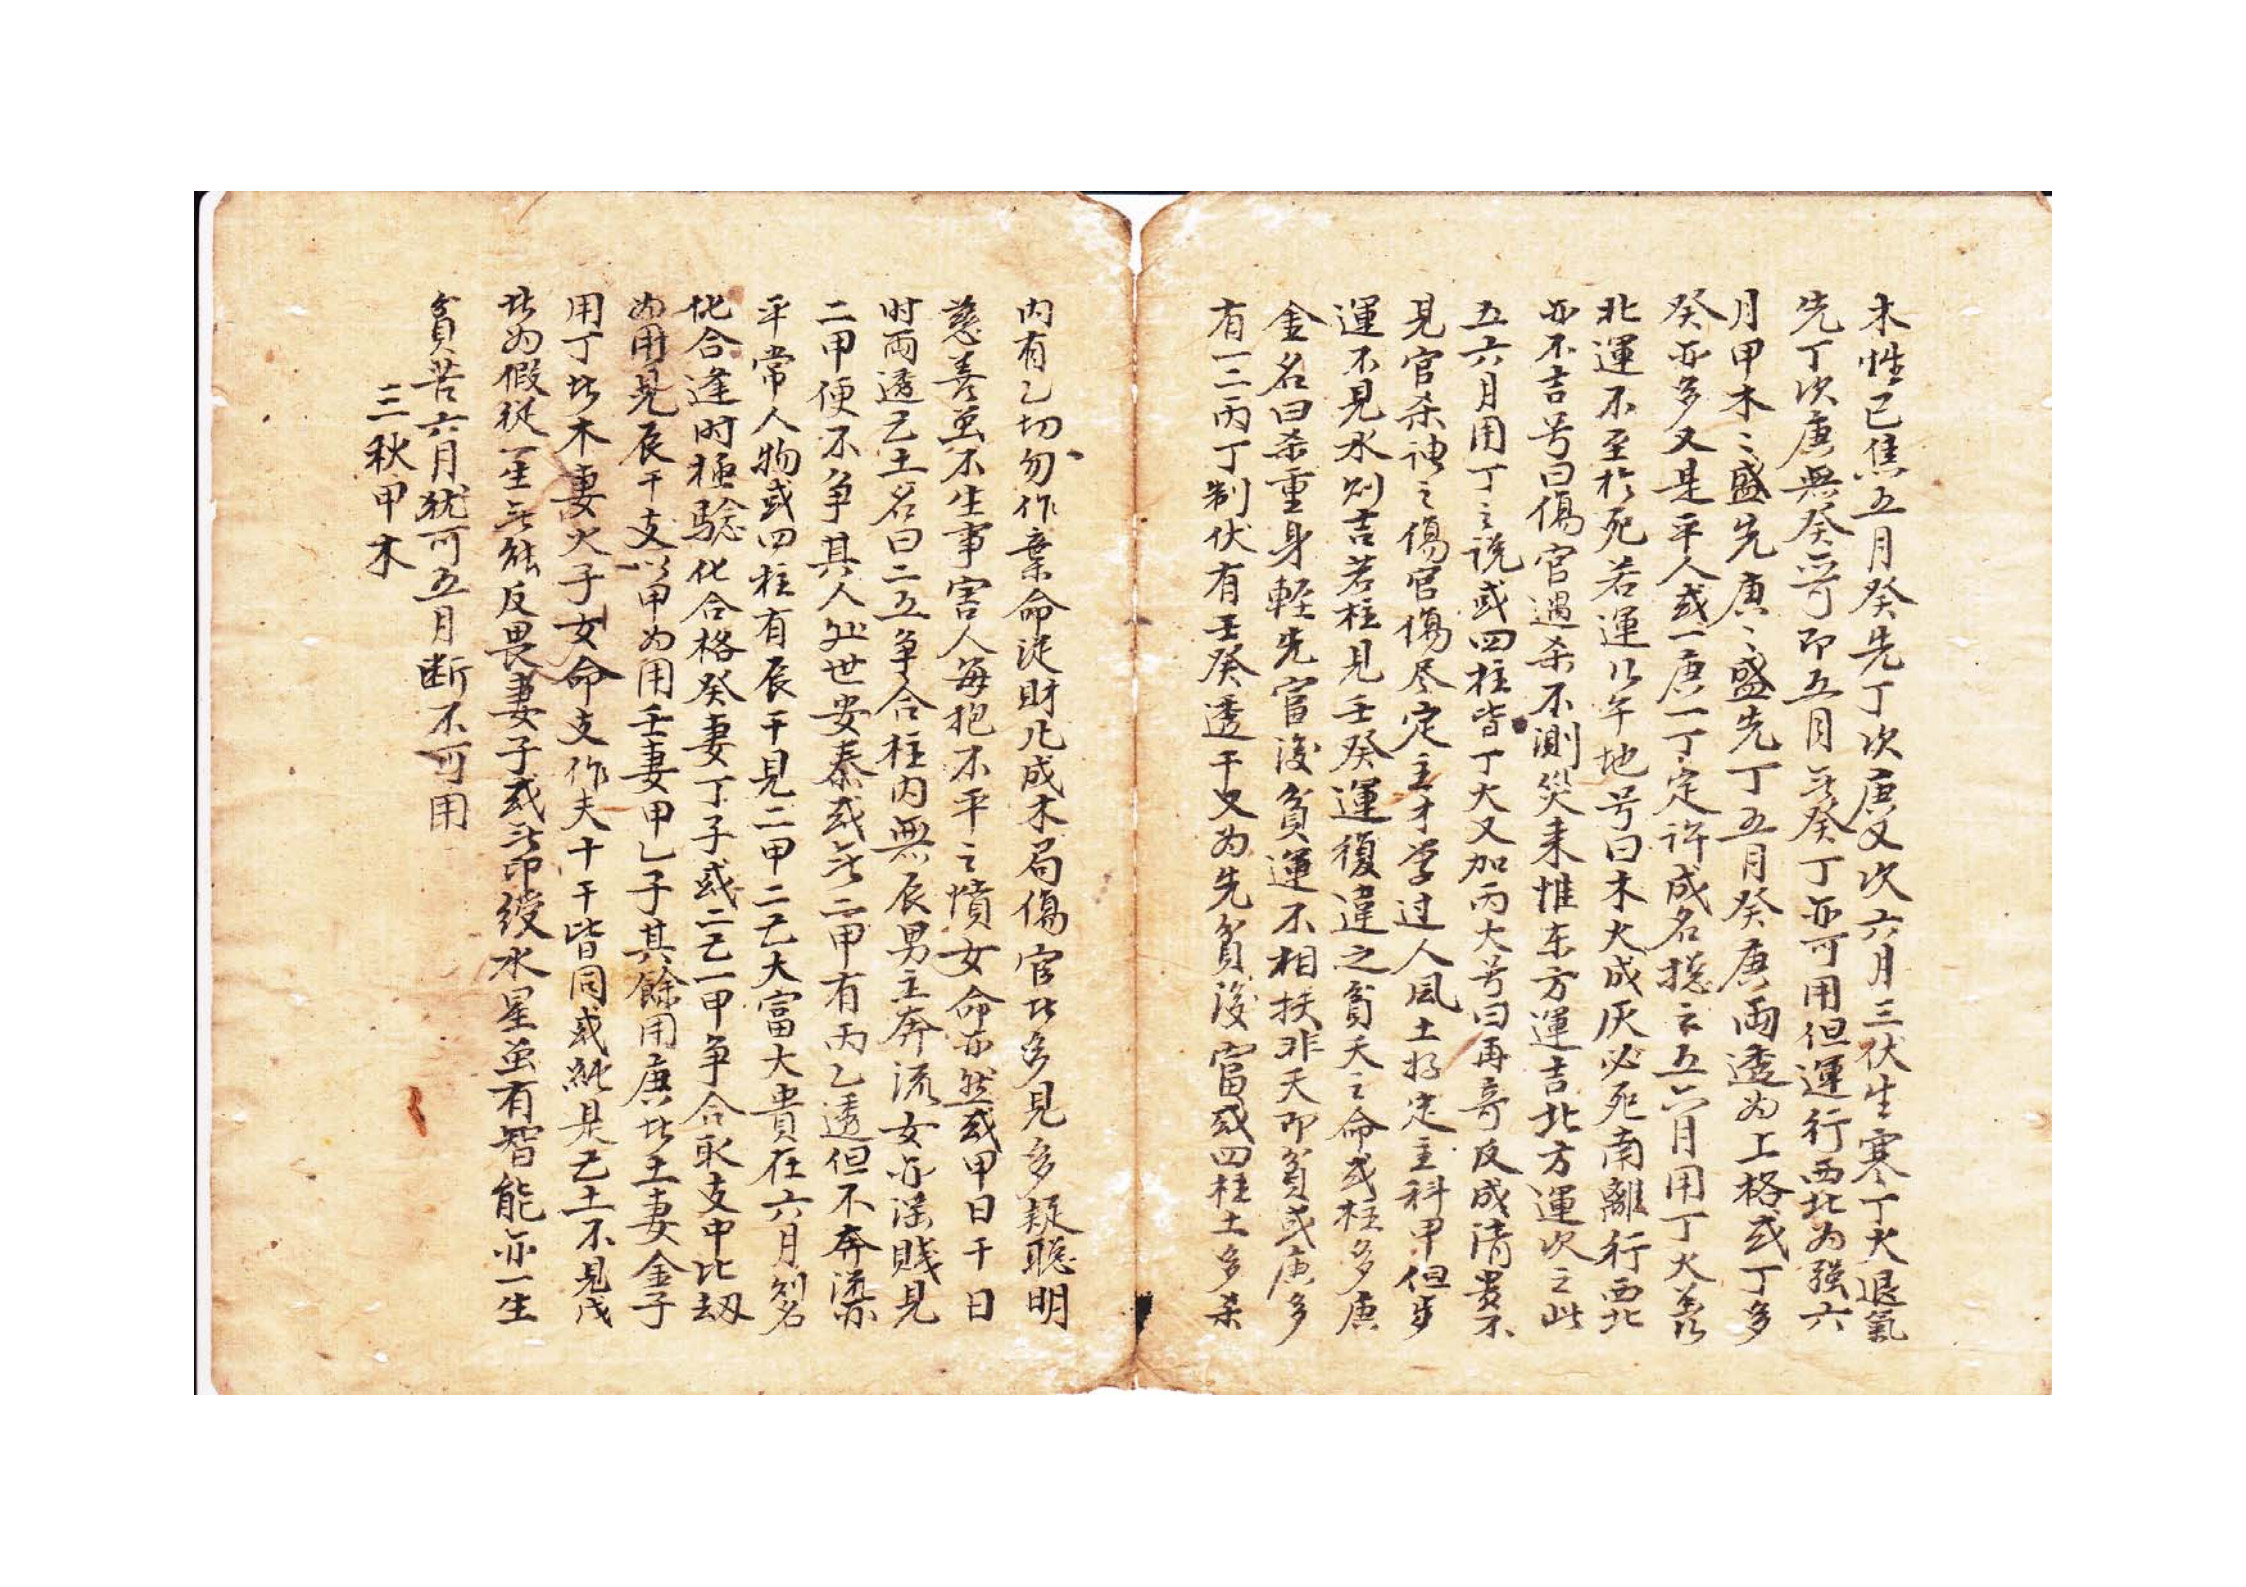 木性已焦五月癸先丁次庚又次六月三伏生寒丁火退氣
先丁次庚無癸亦可即五月无癸丁亦可用但運行西北為强六
月甲木〻盛先庚〻盛先丁五月癸庚兩透为上格或丁多
癸亦多又是平人或一庚一丁定許成名揔言五六月用丁火羔
北運不至於死若運以午地号曰木火成灰必死南離行西北
亦不吉号曰傷官遇杀不測災来惟东方運吉北方運次之此
五六月用丁之説或四柱皆丁火又加丙火号曰再奇反成清贵不
見官杀神之傷官傷尽定主才学过人风土好定主科甲但岁
運不見水则吉若柱見壬癸運復違之貧夭之命或柱多庚
金名曰杀重身軽先富後貧運不相扶非夭即貧或庚多
有一二丙丁制伏有壬癸透干又为先貧後富或四柱土多杀
内有乙切勿作棄命從財凡成木局傷官比多見多疑聪明
慈善虽不生事害人每抱不平之憤女命亦然或甲日干日
时两透己土名曰二五争合柱内無辰男主奔流女亦滛賤見
二甲便不争其人处世安泰或无二甲有丙乙透但不奔流亦
平常人物或四柱有辰干見二甲二己大富大貴在六月别名
化合逢时極驗化合格癸妻丁子或二己一甲争合取支中比刼
为用見辰干支以甲为用壬妻甲乙子其餘用庚此土妻金子
用丁此木妻火子女命支作夫十干皆同或純是己土不見戊
此为假從一生无能反畏妻子或无印綬水星虽有智能亦一生
貧苦六月犹可五月断不可用
三秋甲木